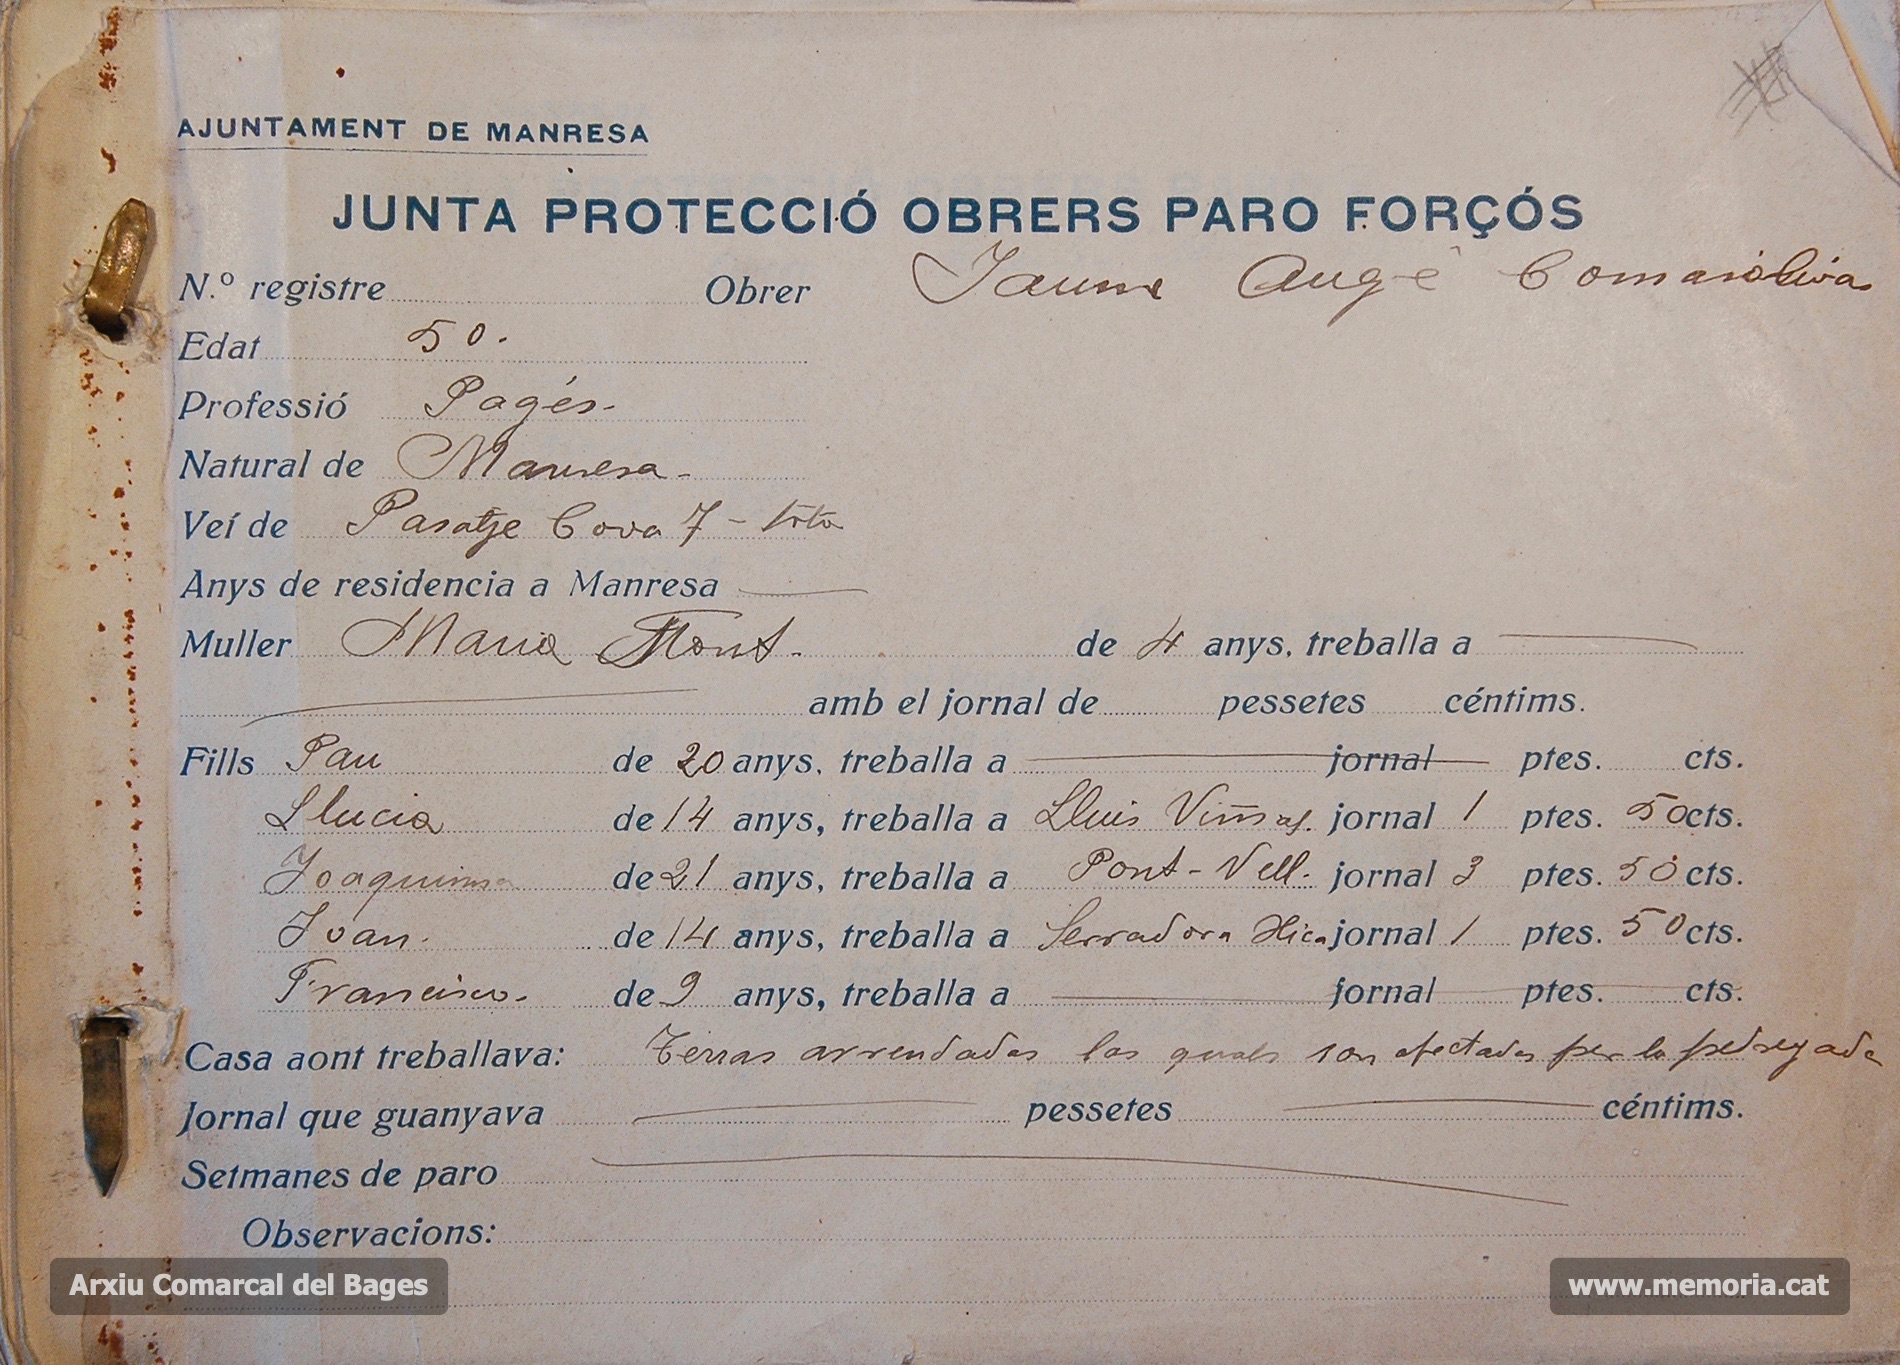 AJUNTAMENT DE MANRESA
JUNTA PROTECCIÓ OBRERS PARO FORÇÓS
N.º registre Obrer Jaume Augé Comasolivas
Edat 50.
Professió Pagés.
Natural de Manresa.
Veí de Pasatje Cova 7 -
Anys de residencia a Manresa
Muller Maria Font. de 4 anys, treballa a
amb el jornal de pessetes céntims.
Fills Pau de 20 anys, treballa a jornal ptes. cts.
Llucia de 14 anys, treballa a Lluis Viñas. jornal 1 ptes. 50 cts.
Joaquima de 21 anys, treballa a Pont-Vell. jornal 3 ptes. 50 cts.
Joan. de 14 anys, treballa a Serradora jornal 1 ptes. 50 cts.
Francisco. de 9 anys, treballa a jornal ptes. cts.
Casa aont treballava: Terras arrendadas las quals son afectadas per la pedregada
Jornal que guanyava pessetes céntims.
Setmanes de paro
Observacions:
Arxiu Comarcal del Bages
www.memoria.cat